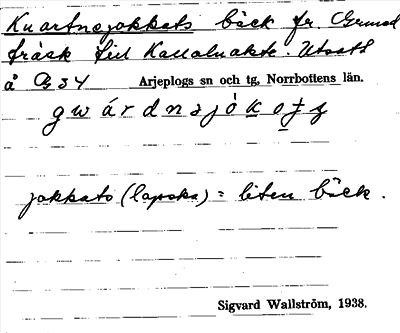 Kuartnojokkats bäck fr. Grund
träsk till Kallaluakte. Utsatt
å G 34 Arjeplogs sn och tg, Norrbottens län.
jokkats (lapska) = liten bäck.
Sigvard Wallström, 1938.